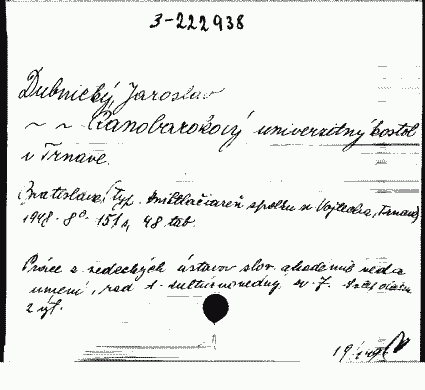 3-222938
Dubnický, Jaroslav
~ ~ Ranobarokový univerzitný kostol
v Trnave.
Bratislava, Typ. Kníhtlačiareň spolku sv. Vojtecha, Trnava,
1948. 8° 151 s, 48 tab.
Práce z vedeckých ústavov slov. akadémie vied a
umení, rad 1. kultúrnovedný sv. 7.
2 výt.